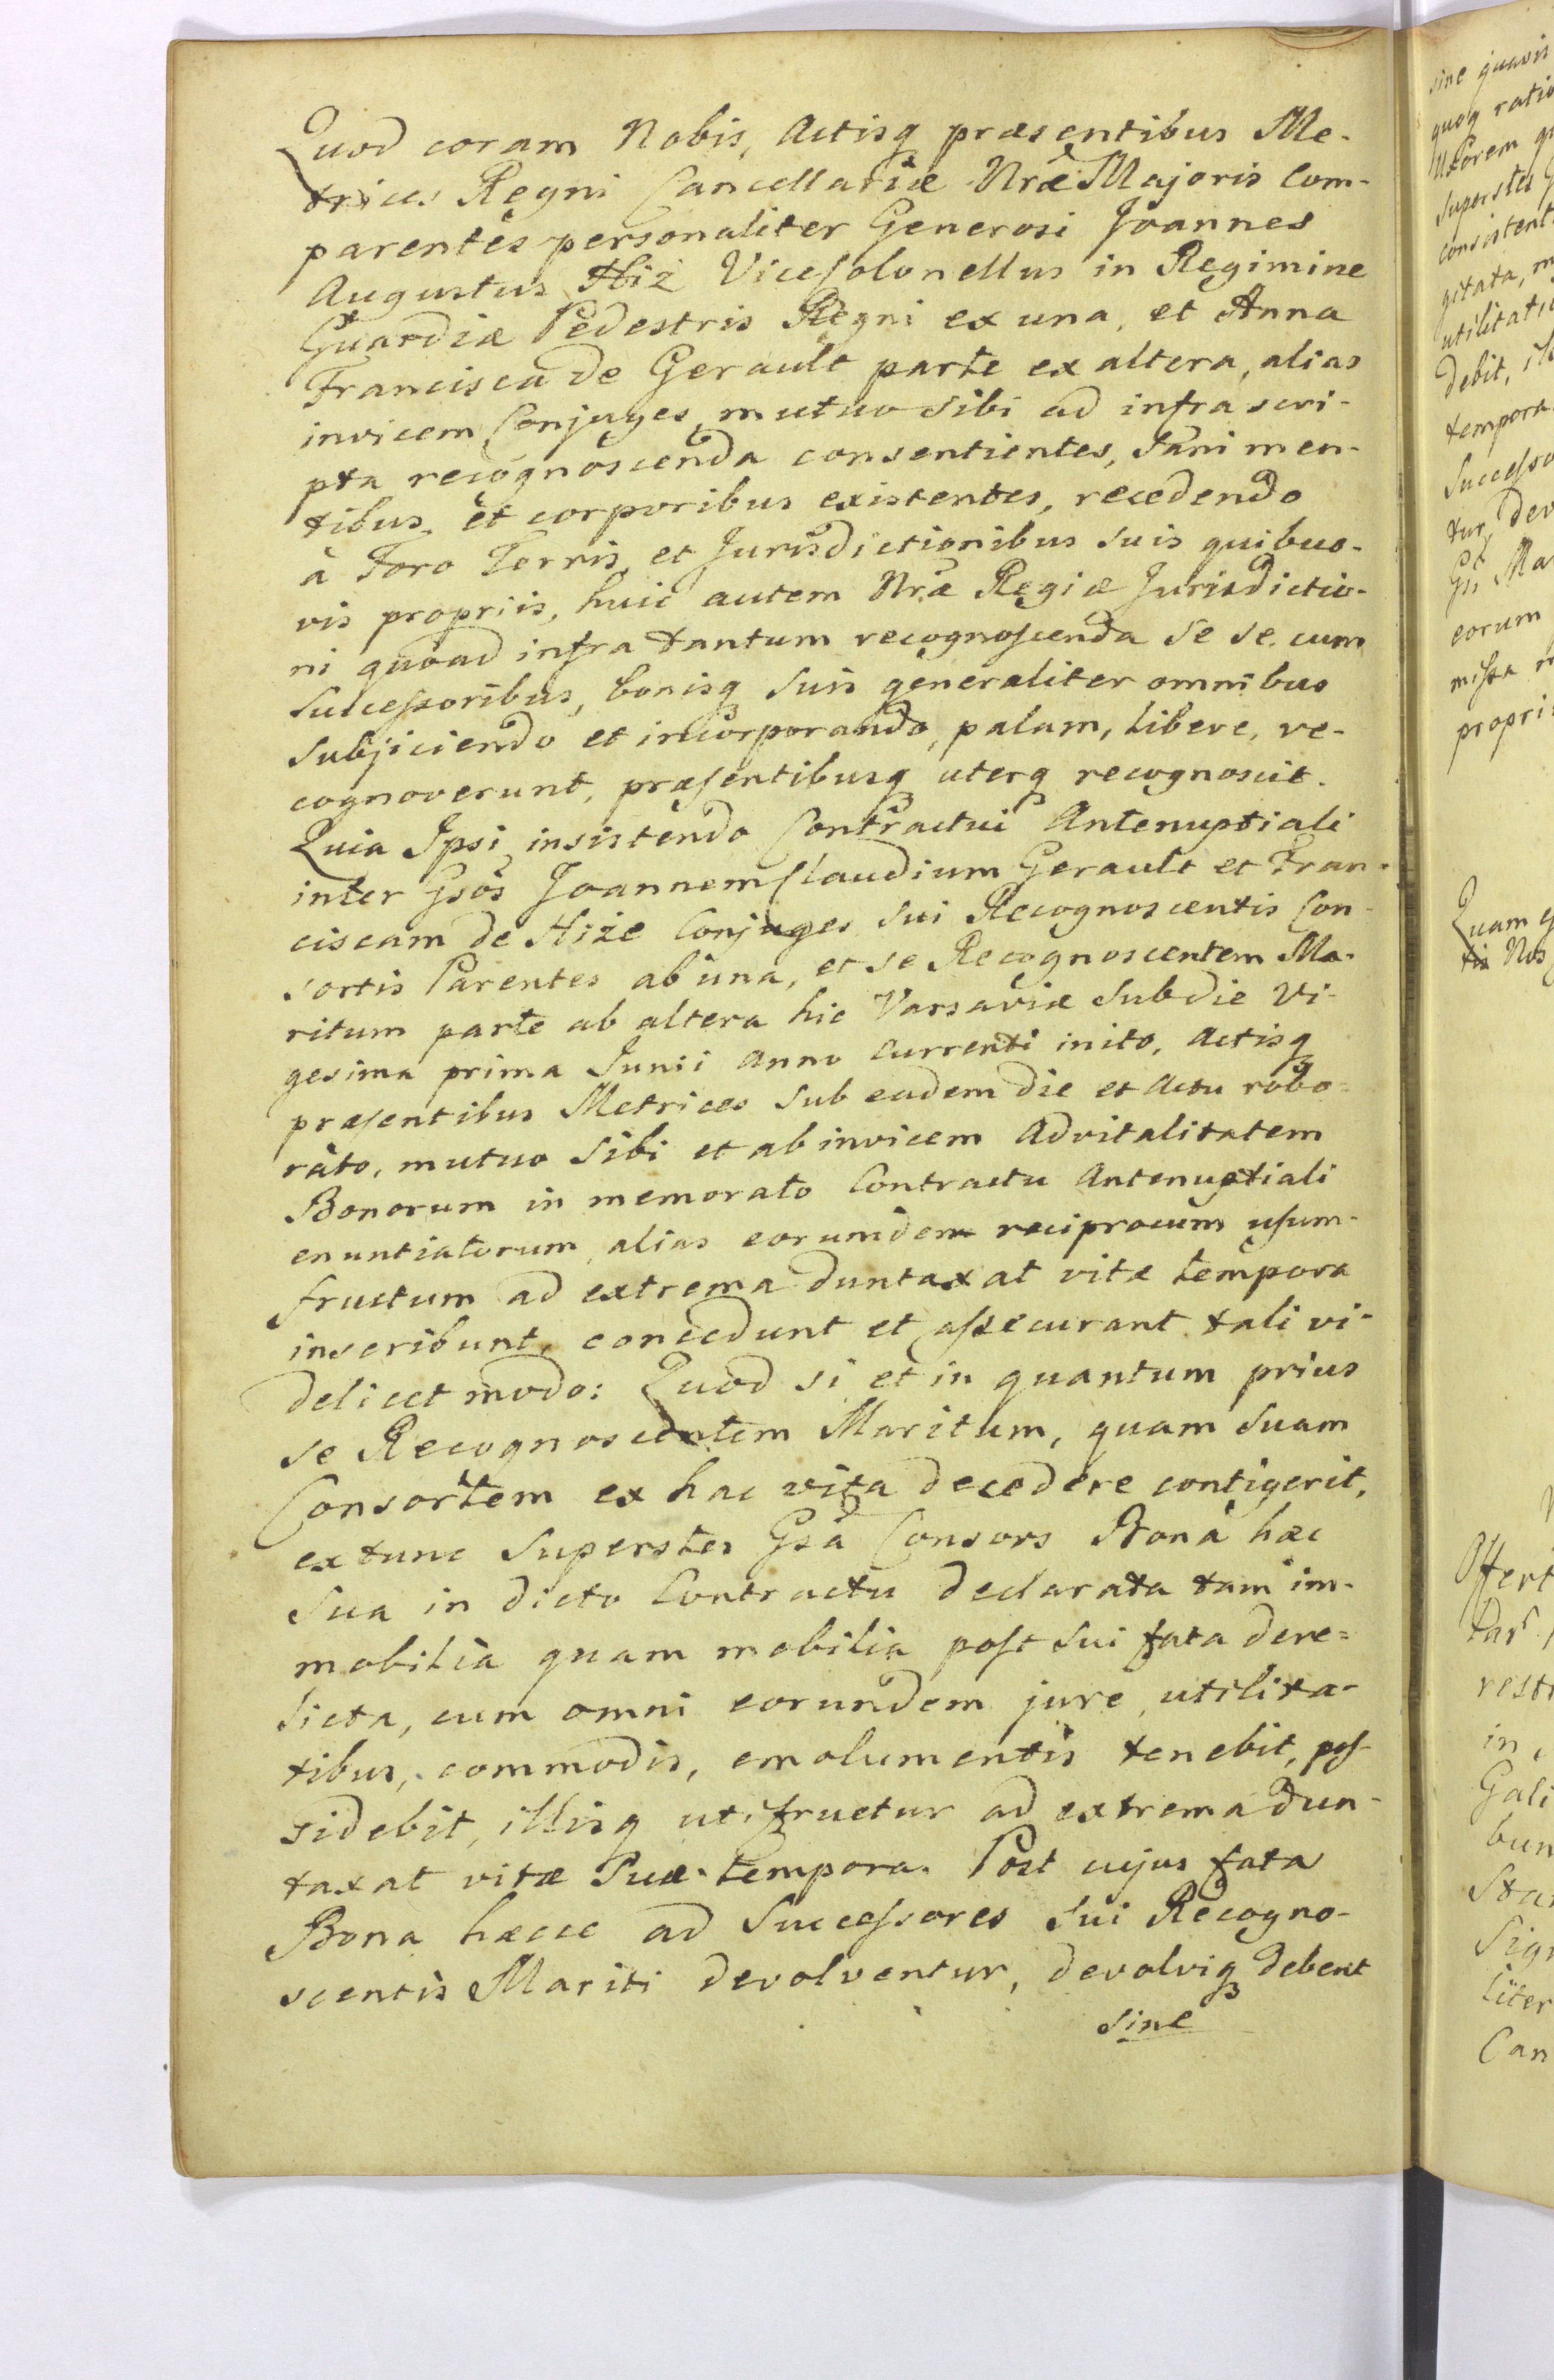 Quod coram Nobis, Actisq præsentibus Me-
trices Regni Cancellariæ Nræ Majoris Com-
parentes personaliter Generosi Joannes
Augustus Hiż ViceColonellus in Regimine
Guardiæ Pedestris Regni ex una, et Anna
Francisca de Gerault parte ex altera, alias
invicem Conjuges, mutuo sibi ad infrascri-
pta recognoscenda consentientes, Sani men-
tibus et corporibus existentes, recedendo
à Foro Terris et Jurisdictionibus suis quibus-
vis propriis, huic autem Nræ Regiæ Jurisdictio-
ni quoad infra tantum recognoscenda se se cum
Successoribus, bonisq Suis generaliter omnibus
Subjiciendo et incorporando, palam, libere, re-
cognoverunt, præsentibusq uterq recognoscit.
Quia Ipsi insistendo Contractui Antenuptiali
inter Gsos Joannem Claudium Gerault et Fran-
ciscam de Hiże Conjuges Sui Recognoscentis Con-
sortis Parentes ab una, et se Recognoscentem Ma-
ritum parte ab altera hic Varsaviæ Sub die Vi-
gesima prima Junii Anno Currenti inito, Actisq
præsentibus Metrices Sub eadem die et Actu robo-
rato, mutuo Sibi et ab invicem Advitalitatem
Bonorum in memorato Contractu Antenuptiali
enuntiatorum, alias eorumdem reciprocum usum-
fructum ad extrema duntaxat vitæ tempora
inscribunt, concedunt et assecurant tali vi-
delicet modo: Quod si et in quantum prius
se Recognoscentem Maritum, quam Suam
Consortem ex hac vita decedere contigerit,
extunc Superstes Gsa Consors Bona hæc
Sua in dicto Contractu declarata tam im-
mobilia quam mobilia post Sui fata dere=
licta, cum omni eorundem jure, utilita-
tibus, commodis, emolumentis tenebit, pos-
sidebit, illisq utifruetur ad extrema dun-
taxat vitæ Suæ tempora. Post cujus fata
Bona hæcce ad Successores Sui Recogno-
scentis Mariti devolventur, devolviq debent
sine
sine quavis
quoq ratio
Uxorem
Superstes
consistent
gitata,
utilitati
debit,
tempora
Successo
tur, dev
Gsi Ma
eorum
missa
propri
Quam
tis Nos
Offert
rest
in
Gali
bun
Sta
Sig
liter
Can